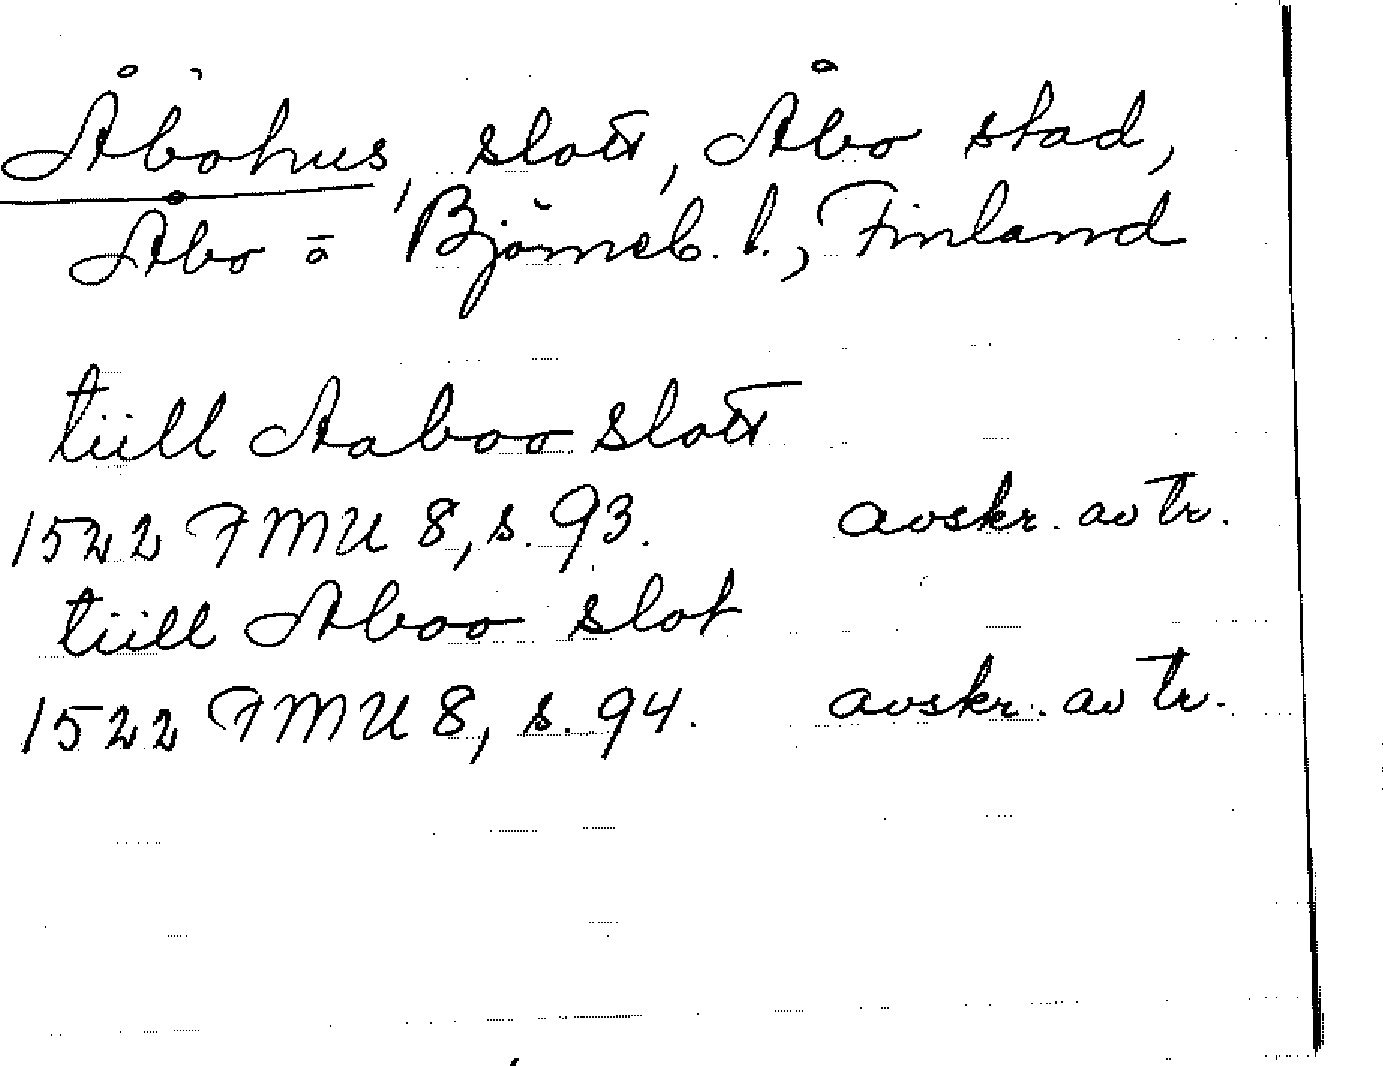 Åbohus, slott, Åbo stad,
Åbo o Björneb. l., Finland
tiill Aaboo slott
1522 FMU 8, s. 93. avskr. av tr.
tiill Aboo slot
1522 FMU 8, s. 94. avskr. av tr.